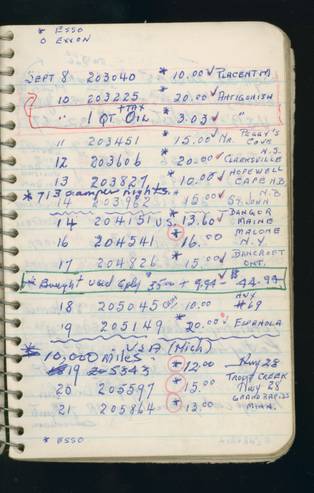 * ESSO
O EXXON
SEPT 8 203040 * 10.00 ✓ PLACENTIA
10 203225 * 20.00 ✓ ANTIGONISH
" 1 QT OIL + TAX * 3.03 ✓ "
11 203451 * 15.00 ✓ NR. PEGGY'S COVE N.S.
12 203606 * 20.00 ✓ CLARKSVILLE
13 203827 * 10.00 ✓ HOPEWELL CAPE N.B.
* 713 camper nights
14 203982 * 15.00 ✓ ST. JOHN N.B.
14 204151 U.S. * 13.60 ✓ BANGOR MAINE
16 204541 * 16.00 MALONE N.Y.
17 204826 * 15.00 ✓ BANCROFT ONT.
* Bought used 6ply $35.00 + 9.94 - $44.94
18 205045 10.00 HWY #69
19 205149 * 20.00 ESPANOLA
* 10,000 miles USA (Mich)
19 205343 * 12.00 Hwy 28
20 205597 * 15.00 TROUT CREEK Hwy 28
21 205864 * 13.00 GRAND RAPIDS MINN.
* ESSO